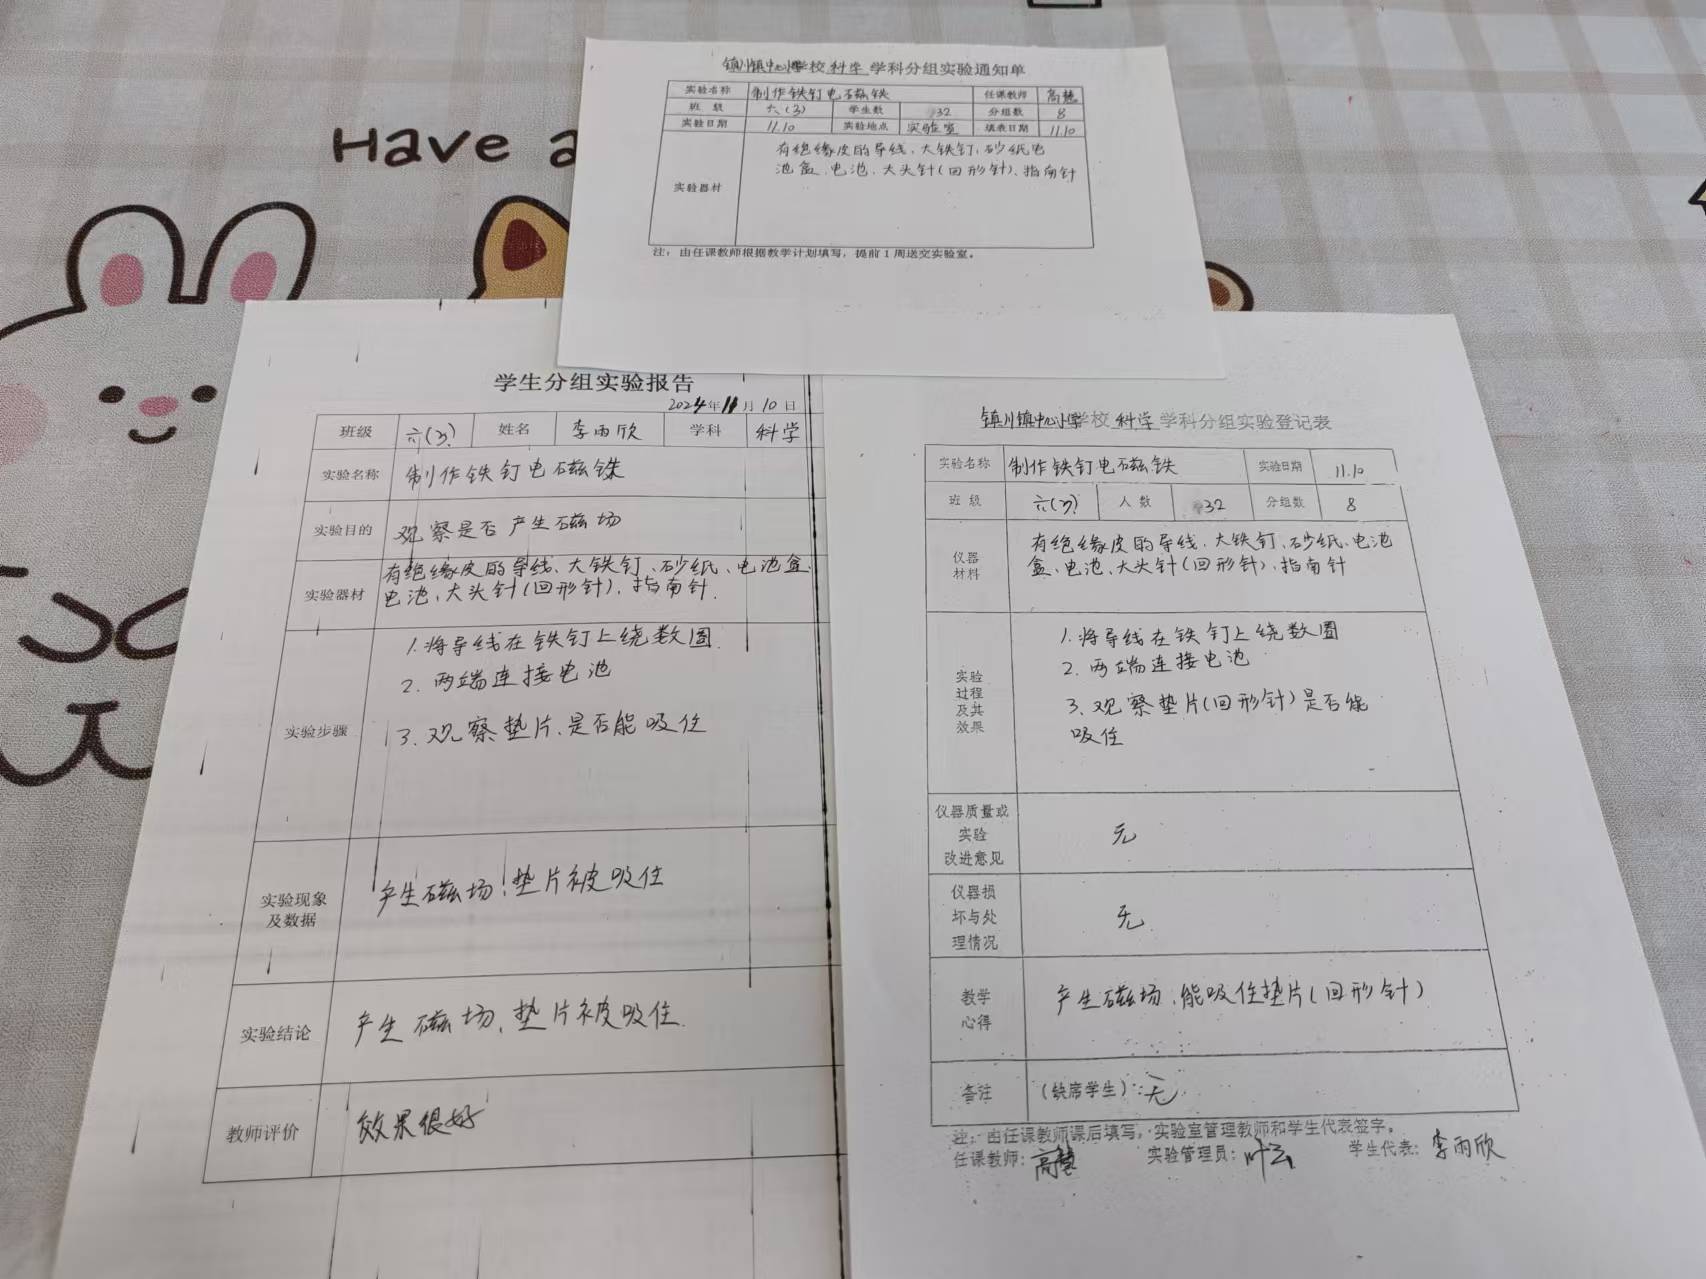 Have a
镇川镇中心小学校 科学 学科分组实验通知单
实验名称 制作铁钉电磁铁 任课教师 高慧
班 级 六(3) 学生数 32 分组数 8
实验日期 11.10 实验地点 实验室 填表日期 11.10
实验器材
有绝缘皮的导线、大铁钉、砂纸电
池盒、电池、大头针(回形针)、指南针
注：由任课教师根据教学计划填写，提前1周送交实验室。
学生分组实验报告
2024年11月10日
班级 六(3) 姓名 李雨欣 学科 科学
实验名称 制作铁钉电磁铁
实验目的 观察是否产生磁场
实验器材
有绝缘皮的导线、大铁钉、砂纸、电池盒、
电池、大头针(回形针)、指南针.
实验步骤
1.将导线在铁钉上绕数圈
2.两端连接电池
3.观察垫片是否能吸住
实验现象
及数据
产生磁场,垫片被吸住
实验结论 产生磁场、垫片被吸住
教师评价 效果很好
镇川镇中心小学校 科学 学科分组实验登记表
实验名称 制作铁钉电磁铁 实验日期 11.10
班 级 六(3) 人 数 32 分组数 8
仪器
材料
有绝缘皮的导线、大铁钉、砂纸、电池
盒、电池、大头针(回形针)、指南针
实验
过程
及其
效果
1.将导线在铁钉上绕数圈
2.两端连接电池
3.观察垫片(回形针)是否能
吸住
仪器质量或
实验
改进意见
无
仪器损
坏与处
理情况
无
教学
心得
产生磁场,能吸住垫片(回形针)
备注 (缺席学生):无
注：由任课教师课后填写，实验室管理教师和学生代表签字。
任课教师：高慧 实验管理员：叶云 学生代表：李雨欣